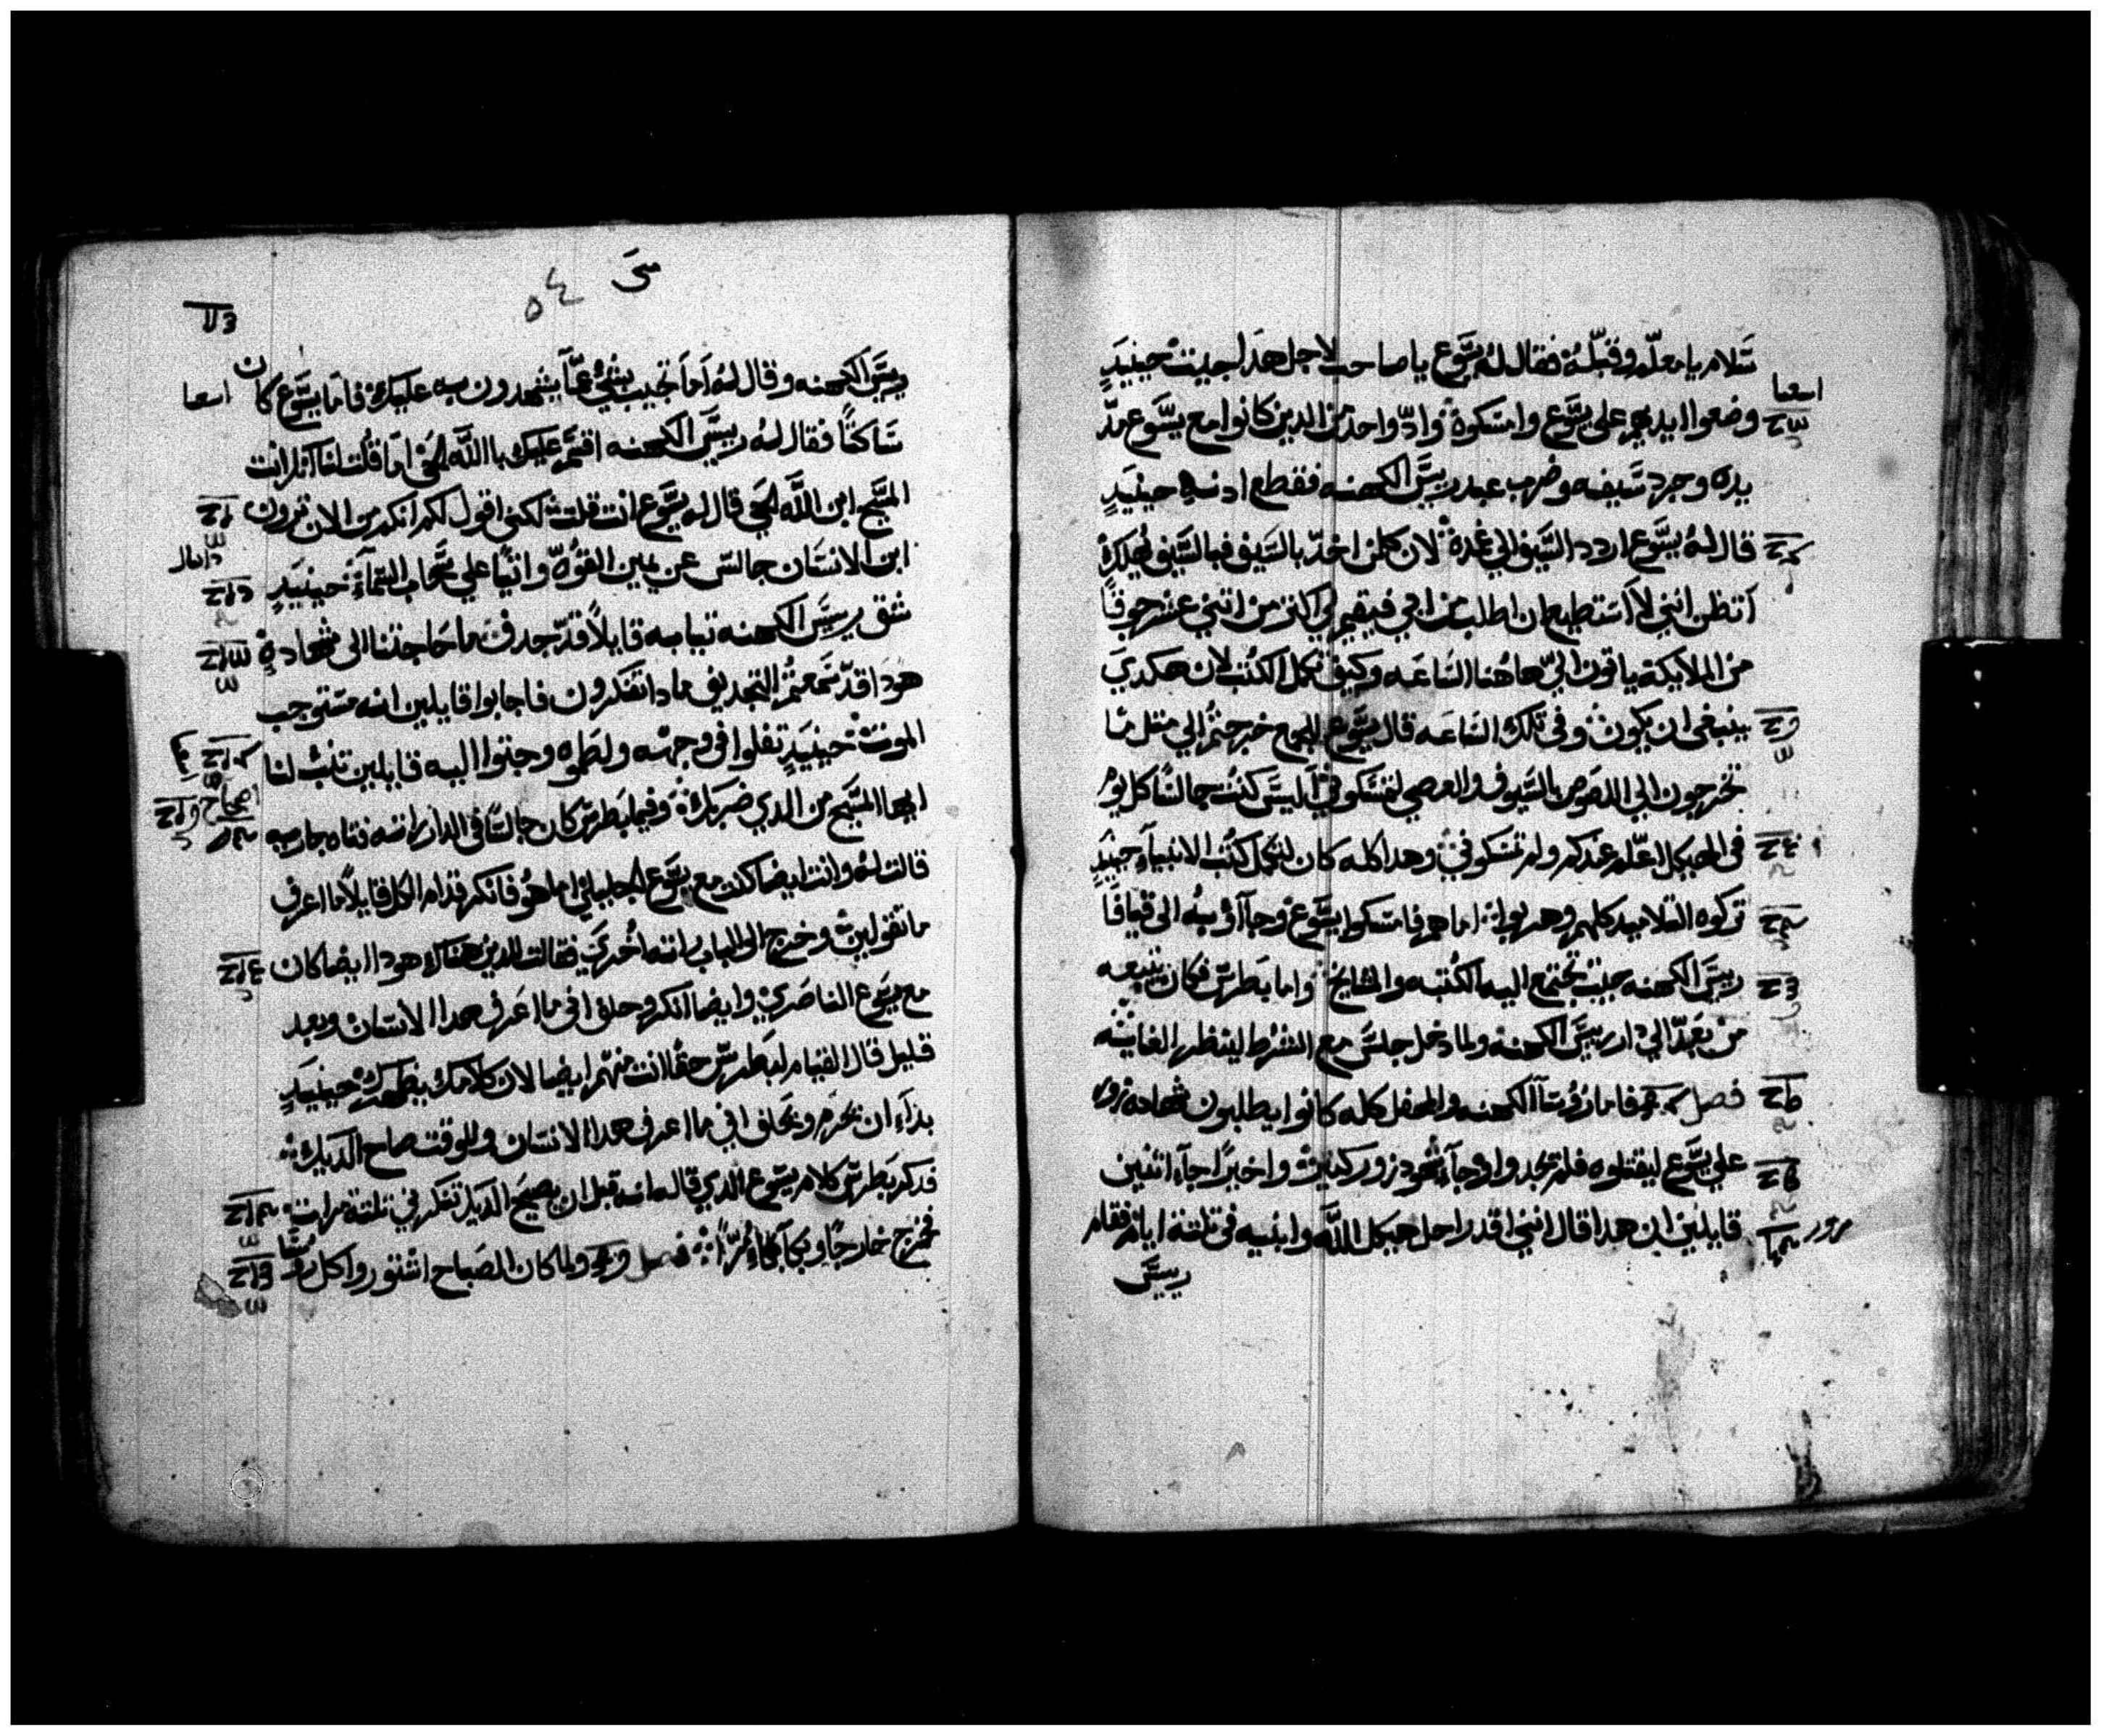 سَلام يا معلّم وقبّلهُ فقال لهُ يسَّوع يا صاحب لاجل هدا جيت حينيدٍ
اسعيا
وضعوا ايديهم على يسَّوع وامسَكوهُ وادّ واحد من الدين كانوا مع يسَّوع مدّ
يده وجرد سَيفه وضرب عبد رييسَّ الكهنه فقطع ادنه حينيدٍ
قال لهُ يسَّوع اردد السَّيف الي غمدهُ لان كلمن اخدّ بالسَيف فبالسَّيف يُهلكُ
اتظن انني لاَ اسَتطيع ان اطلب من ابي فيقيم لي اكتر من اتني عشر جوقًا
من الملايكة ياتون اليّ هاهُنا السَاعَه وكيف تكمل الكتُب لان هكدي
ينبغي ان يكون وفي تلك السَاعَه قال يسَّوع للجمع خرجتُم الي متل ما
تخرجون الي اللصَوص بالسَّيوف والعصي لتمسَكوني اَليسَّ كنتُ جالسًا كل يوم
في الهيكل اعّلم عندكم ولم تمسَكوني وهدا كله كان لتكمل كتُب الانبياَءِ حينيدٍ
تركوه التلاميد كلهم وهربوا اما هم فامسَكوا يسَّوع وجاَاؤ بهُ الى قيافًا
رييسَّ الكهنه حيت تجتمع اليه الكتبه والمشايخ واما بَطرسّ فكان يتبعه
من بعَدّ الي دار رييسَّ الكهنه ولما دخل جلسَّ مع الشرُط لينظر الغايته
فصل فاما رؤسَآ الكهنه والمحفل كله كانوا يطلبون شهادة زور
علي يسَّوع ليقتلوه فلم يجدوا وجآء شهُود زور كتيرة واخيرًا جآء اتنين
قايلين ان هدا قال انني اقدر احل هيكل اللّه وابنيه في تلتة ايام فقام
مزمور
رييسَّ
متى
٥٤
رييسَّ الكهنه وقال لهُ اَما تجيب بشيُ عمّا يشهدون به عليك فاما يسَّوع كان
اسعيا
سَاكتًا فقال لهُ رييسَّ الكهنه اقسَم عليك باللَّه الحَي اما قُلت لنا اَنكَ انت
المسَّيح ابن اللَّه الحَي قال له يسَّوع انت قلت لكني اقول لكم انكم من الان ترون
دانيال
ابن الانسَان جالسّ عن يمين القوُّه واتيًا علي سَّحاب السَّماَءِ حينيدٍ
شق رييسَّ الكهنه تيابه قايلاً قدّ جدف ما حَاجتنا الى شهادهٍ
هودا قدّ سَمعتُم التجديف مادا تفتكرون فاجابوا قايلين انه مسَتوجب
الموت حينيدٍ تفلوا في وجهه ولطَموه وجتوا اليه قايلين تنبُ لنا
ايها المسَّيح من الدي ضربك وفيما بَطرسّ كان جالسًا في الدار اتته فتاه جاريه
اصحاح
قالت لهُ وانت ايضا كنت مع يسَّوع الجليلي اما هُو فانكر قدام الكل قايلاً ما اعرف
ما تقولين وخرج الى الباب راته اُخري فقالت للدين هناك هودا ايضا كان
مع يسَوع الناصَري وايضا انكر وحلف اني ما اعَرف هدا الانسَان وبعد
قليل قال القيام لبَطرسّ حقًا انت منهّم ايضا لان كلامك يظهرك حينيدٍ
بداَءَ ان يحَرم ويحَلف اني ما اعرف هدا الانسَان وللوقت صاح الديك
فدكر بَطرسّ كلام يسَّوع الدي قاله انه قبل ان يصيحَ الديك تنكرني تلتة مرات
فخرج خارجًا وبَكاَ بكآءُ مُرًّا فصل ولما كان الصَباح اتشوروا كل روسَّا